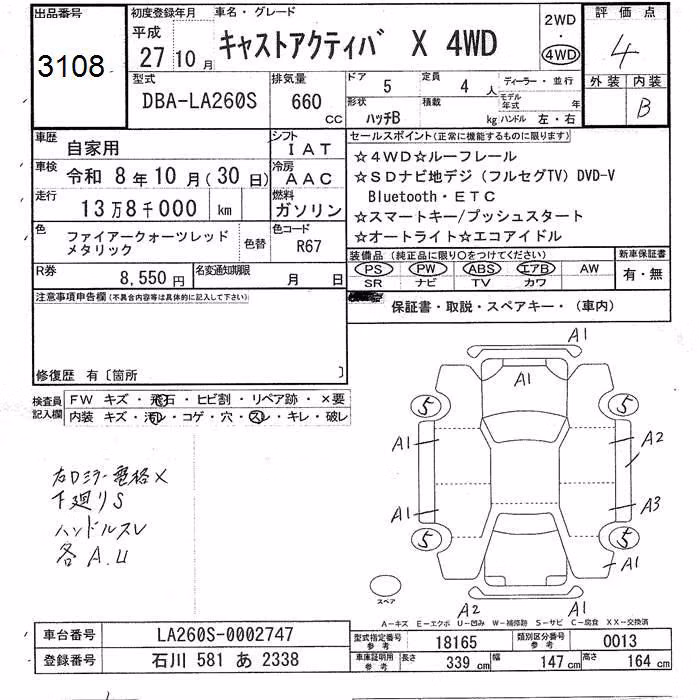 出品番号
3108
初度登録年月
平成
27 10 月
車名・グレード
キャストアクティバ X 4WD
2WD
・
4WD
評価点
4
外装 内装
B
型式
DBA-LA260S
排気量
660 CC
ドア
5
定員
4 人
ディーラー・並行
形状
ハッチB
積載
kg
モデル年式
年
ハンドル 左・右
車歴
自家用
シフト
IAT
車検
令和 8年 10月(30日)
冷房
AAC
走行
13万8千000 km
燃料
ガソリン
色
ファイアークォーツレッド
メタリック
色替
色コード
R67
R券
8,550 円
名変通知期限
月 日
セールスポイント(正常に機能するものに限ります)
☆4WD☆ルーフレール
☆SDナビ地デジ(フルセグTV) DVD-V
Bluetooth・ETC
☆スマートキー/プッシュスタート
☆オートライト☆エコアイドル
装備品(純正品に限り○をつけてください)
PS PW ABS エアB AW
SR ナビ TV カワ
新車保証書
有・無
保証書・取説・スペアキー・(車内)
注意事項申告欄(不具合内容等は具体的に記入して下さい)
修復歴 有〔箇所 〕
検査員
記入欄
FW キズ・飛石・ヒビ割・リペア跡・×要
内装 キズ・汚レ・コゲ・穴・スレ・キレ・破レ
右ロミラー電格×
下廻りS
ハンドルスレ
各A.U
A1
A1
5
5
A1
A2
A1
A3
5
5
A1
A2
A1
スペア
A-キズ E-エクボ U-凹み W-補修跡 S-サビ C-腐食 XX-交換済
車台番号
LA260S-0002747
登録番号
石川 581 あ 2338
型式指定番号
参考
18165
類別区分番号
参考
0013
車庫証明用
参考
長さ
339 cm
幅
147 cm
高さ
164 cm